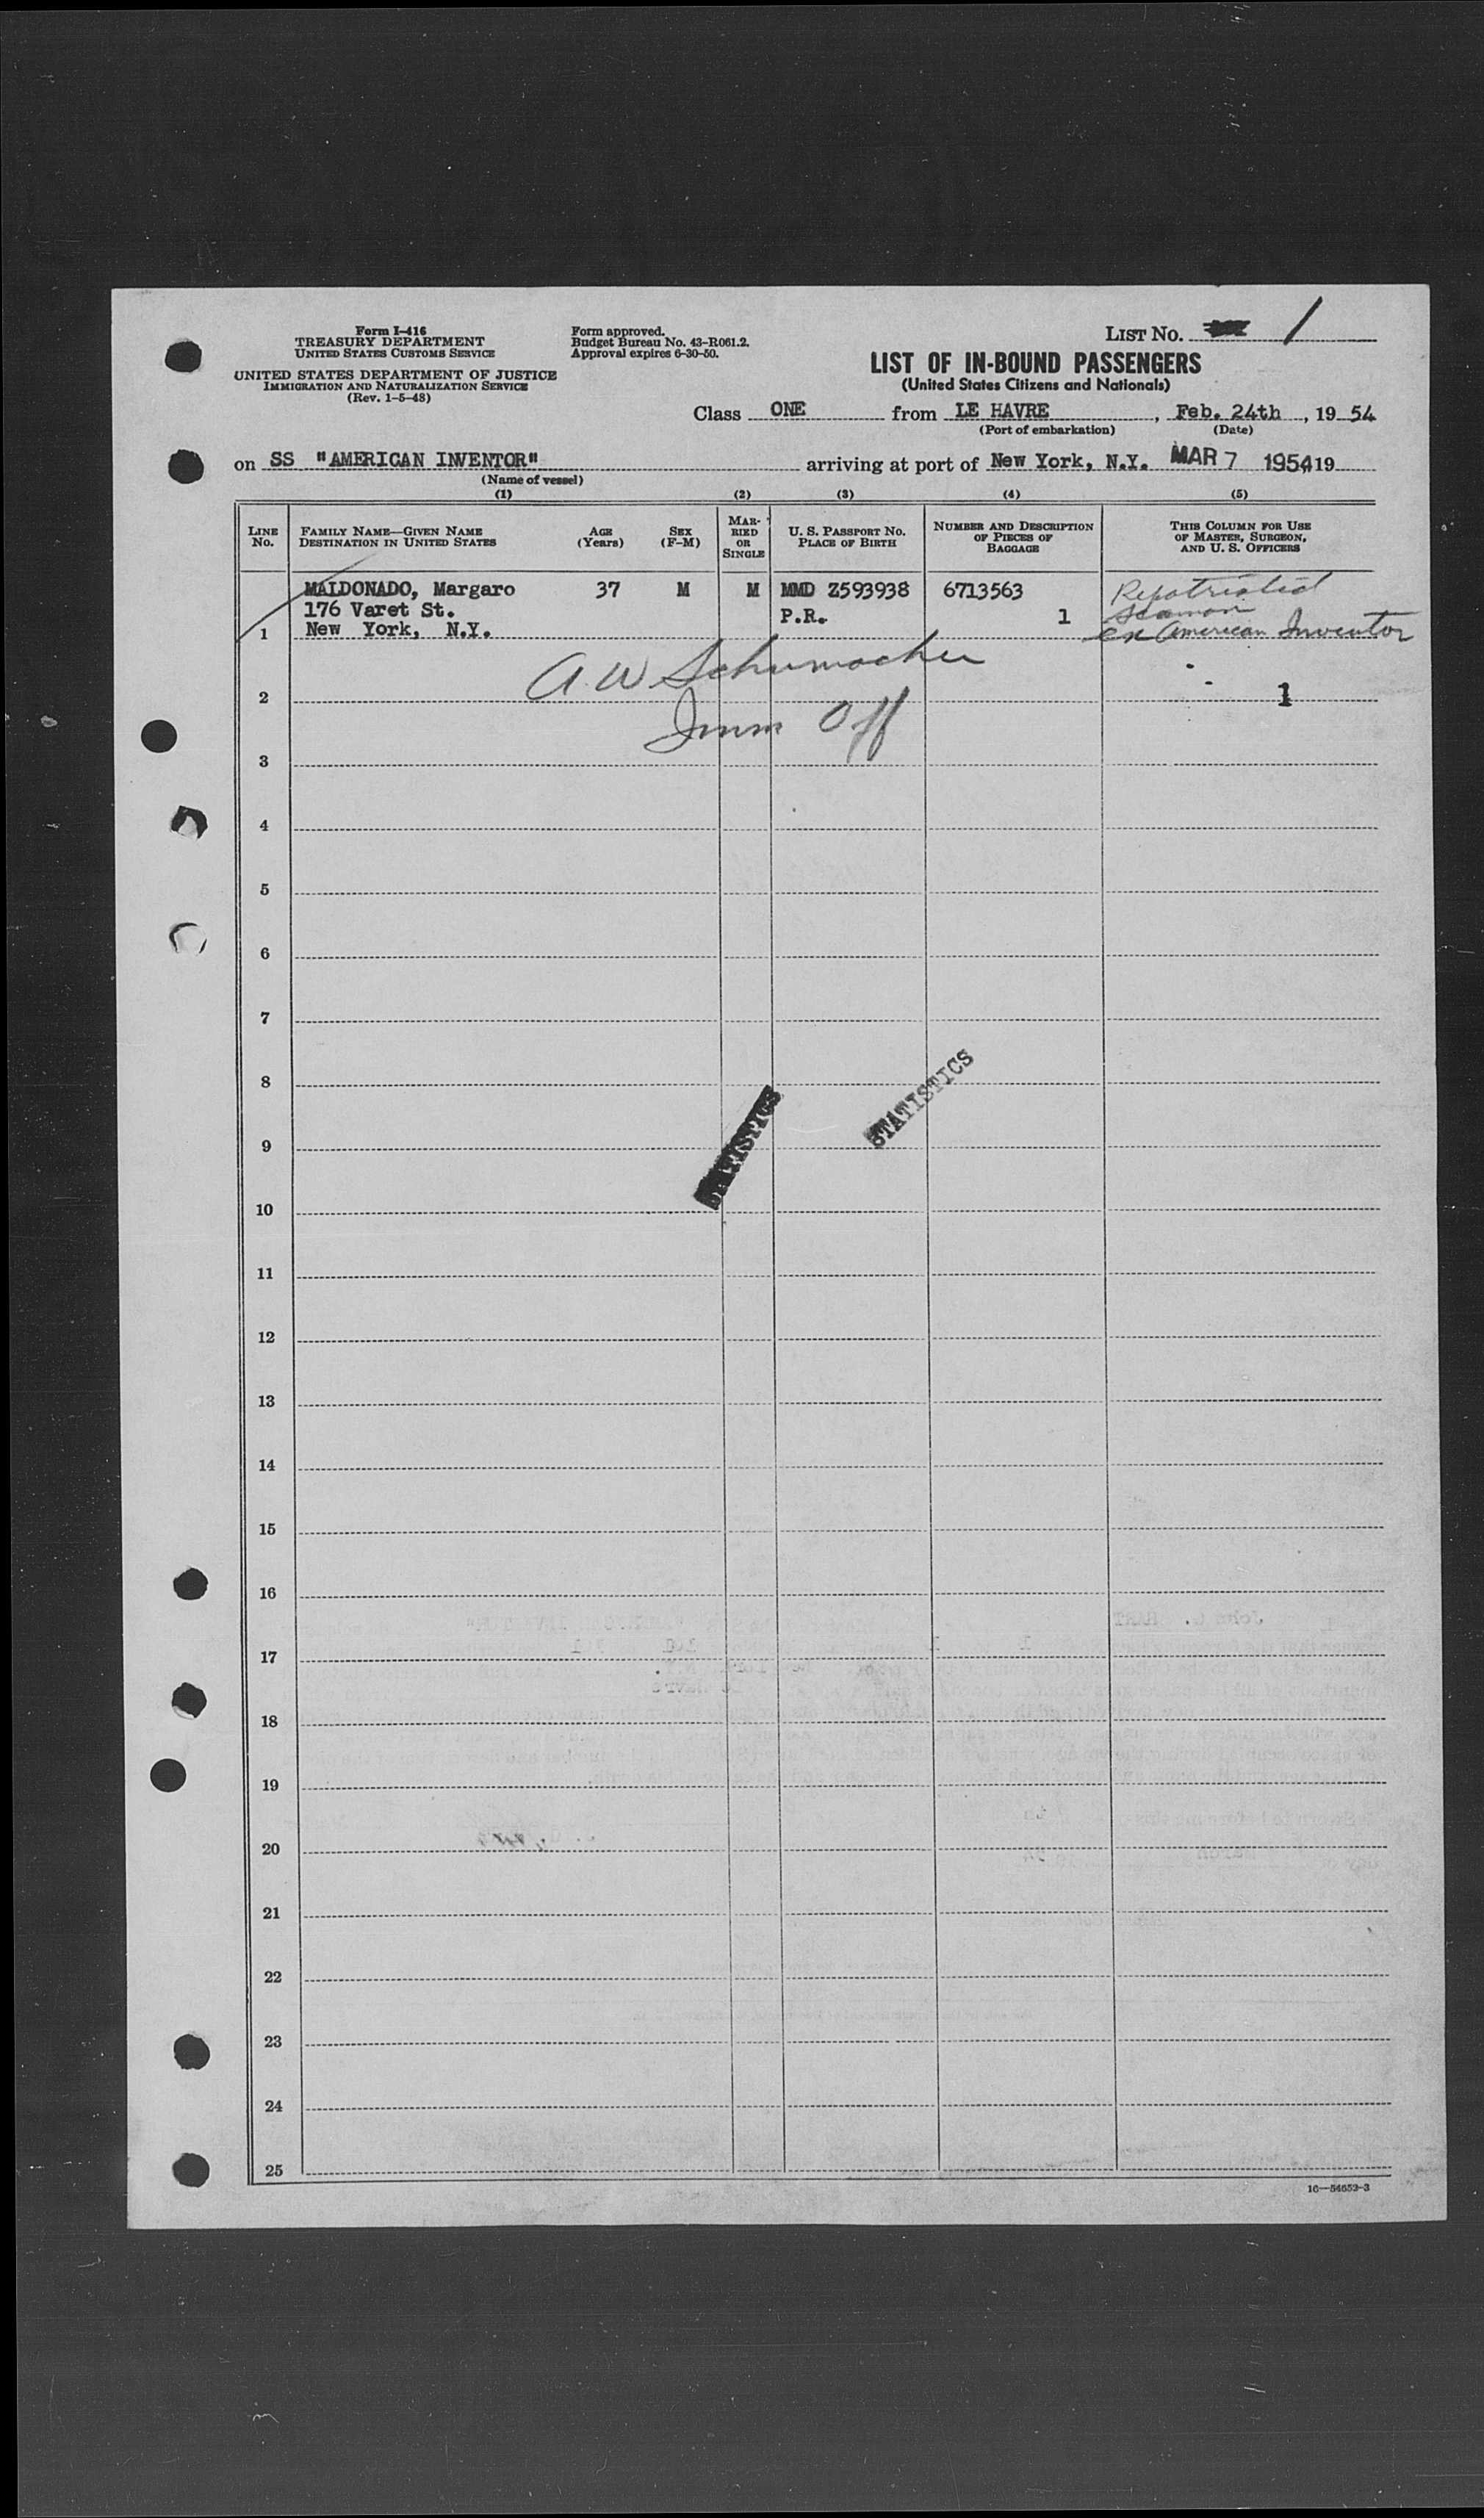 Form I-416
TREASURY DEPARTMENT
UNITED STATES CUSTOMS SERVICE
UNITED STATES DEPARTMENT OF JUSTICE
IMMIGRATION AND NATURALIZATION SERVICE
(Rev. 1-5-48)
Form approved.
Budget Bureau No. 43-R061.2.
Approval expires 6-30-50.
LIST NO. 1
LIST OF IN-BOUND PASSENGERS
(United States Citizens and Nationals)
Class ONE from LE HAVRE, Feb. 24th, 19 54
(Port of embarkation) (Date)
on SS "AMERICAN INVENTOR" arriving at port of New York, N.Y. MAR 7 1954, 19
(Name of vessel)
(1) (2) (3) (4) (5)
LINE No.
FAMILY NAME—GIVEN NAME
DESTINATION IN UNITED STATES
AGE (Years)
SEX (F-M)
MARRIED OR SINGLE
U. S. PASSPORT NO.
PLACE OF BIRTH
NUMBER AND DESCRIPTION OF PIECES OF BAGGAGE
THIS COLUMN FOR USE OF MASTER, SURGEON, AND U. S. OFFICERS
MALDONADO, Margaro 37 M M MMD Z593938 6713563 Repatriated
176 Varet St. P.R. 1 seaman
1 New York, N.Y. ex American Inventor
A. W Schumacher
2 1
Imm Off
3
4
5
6
7
8
STATISTICS
STATISTICS
9
10
11
12
13
14
15
16
17
18
19
20
21
22
23
24
25
16—54652-3